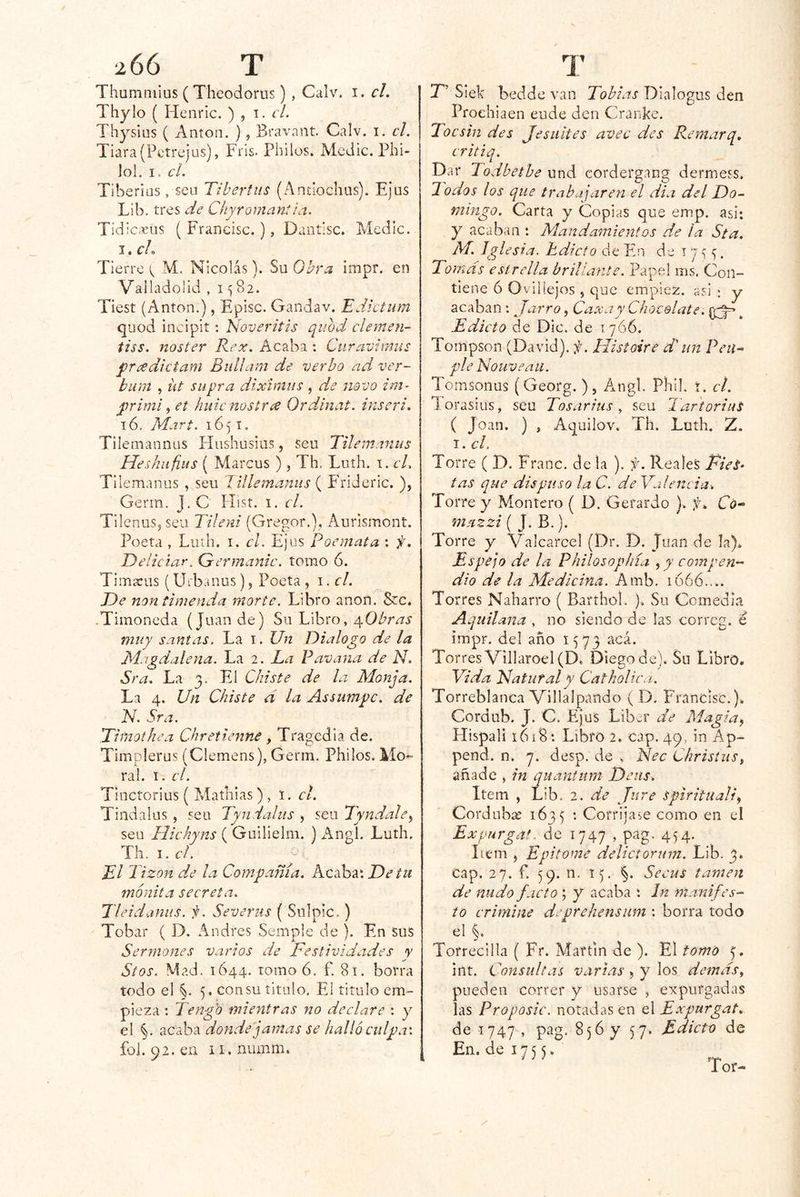 266 T
Thummius ( Theodorus ) , Calv. 1. cl.
Thylo ( Henric. ) , 1. cl.
Thysius ( Anton. ) , Bravant. Calv. 1. cl.
Tiara (Petrejus), Fris. Philos. Medic. Phi-
lol. 1. cl.
Tiberius , seu Tibertus (Antiochus). Ejus
Lib. tres de Chyromantia.
Tidicæus ( Francisc. ), Dantisc. Medic.
1. cl.
Tierre ( M. Nicolás ). Su Obra impr. en
Valladolid , 1582.
Tiest (Anton.) , Episc. Gandav. Edictum
quod incipit : Noveritis quod clemen-
tiss. noster Rex. Acaba : Curavimus
prædictam Bullam de verbo ad ver-
bum , ut supra diximus , de novo im-
primi , et huic nostræ Ordinat. inseri.
16. Mart. 1651.
Tilemannus Hushusius, seu Tilemanus
Heshufius ( Marcus ) , Th. Luth. 1. cl.
Tilemanus , seu Tillemanus ( Frideric. ),
Germ. J. C Hist. 1. cl.
Tilenus, seu Tileni (Gregor.), Aurismont.
Poeta , Luth. 1. cl. Ejus Poemata : ꝟ.
Deliciar. Germanic. tomo 6.
Timæus (Urbanus ), Poeta , 1. cl.
De non timenda morte. Libro anon. &c.
Timoneda (Juan de) Su Libro, 4 Obras
muy santas. La 1. Un Dialogo de la
Magdalena. La 2. La Pavana de N.
Sra. La 3. El Chiste de la Monja.
La 4. Un Chiste á la Assumpc. de
N. Sra.
Timothea Chretienne , Tragedia de.
Timplerus (Clemens), Germ. Philos. Mo-
ral. 1. cl.
Tinctorius ( Mathias ), 1. cl.
Tindalus , seu Tyndalus , seu Tyndale,
seu Hichyns ( Guilielm. ) Angl. Luth.
Th. 1. cl.
El Tizon de la Compañia. Acaba: De tu
mónita secreta.
Tleidanus. ꝟ. Severus ( Sulpic. )
Tobar ( D. Andres Semple de ). En sus
Sermones varios de Festividades y
Stos. Mad. 1644. tomo 6. f. 81. borra
todo el §. 5. con su titulo. El titulo em-
pieza : Tengo mientras no declare : y
el §. acaba donde jamas se halló culpa:
fol. 92. en 11. numm.
T
T' Siek bedde van Tobias Dialogus den
Prochiaen eude den Cranke.
Tocsin des Jesuites avec des Remarq.
critiq.
Dar Todbetbe und cordergang dermess.
Todos los que trabajaren el dia del Do-
mingo. Carta y Copias que emp. asi:
y acaban : Mandamientos de la Sta.
M. Iglesia. Edicto de En de 1755.
Tomás estrella brillante. Papel ms. Con-
tiene 6 Ovillejos , que empiez. asi : y
acaban : Jarro, Caxa y Chocolate. ☞
Edicto de Dic. de 1766.
Tompson (David). ꝟ. Histoire d' un Peu-
ple Nouveau.
Tomsonus ( Georg. ), Angl. Phil. 1. cl.
Torasius, seu Tosarius , seu Tartorius
( Joan. ) , Aquilov. Th. Luth. Z.
1. cl.
Torre ( D. Franc. de la ). ꝟ. Reales Fies-
tas que dispuso la C. de Valencia.
Torre y Montero ( D. Gerardo ). ꝟ. Co-
mazzi ( J. B. ).
Torre y Valcarcel (Dr. D. Juan de la).
Espejo de la Philosophía , y compen-
dio de la Medicina. Amb. 1666....
Torres Naharro ( Barthol. ). Su Comedia
Aquilana , no siendo de las correg. é
impr. del año 1573 acá.
Torres Villaroel (D. Diego de). Su Libro.
Vida Natural y Catholica.
Torreblanca Villalpando ( D. Francisc.).
Cordub. J. C. Ejus Liber de Magia,
Hispali 1618: Libro 2. cap. 49. in Ap-
pend. n. 7. desp. de , Nec Christus,
añade , in quantum Deus.
Item , Lib. 2. de Jure spirituali,
Cordubæ 1635 : Corrijase como en el
Expurgat. de 1747 , pag. 454.
Item , Epitome delictorum. Lib. 3.
cap. 27. f. 59. n. 15. §. Secus tamen
de nudo facto ; y acaba : In manifes-
to crimine deprehensum : borra todo
el §.
Torrecilla ( Fr. Martin de ). El tomo 5.
int. Consultas varias , y los demás,
pueden correr y usarse , expurgadas
las Proposic. notadas en el Expurgat.
de 1747 , pag. 856 y 57. Edicto de
En. de 1755.
Tor-